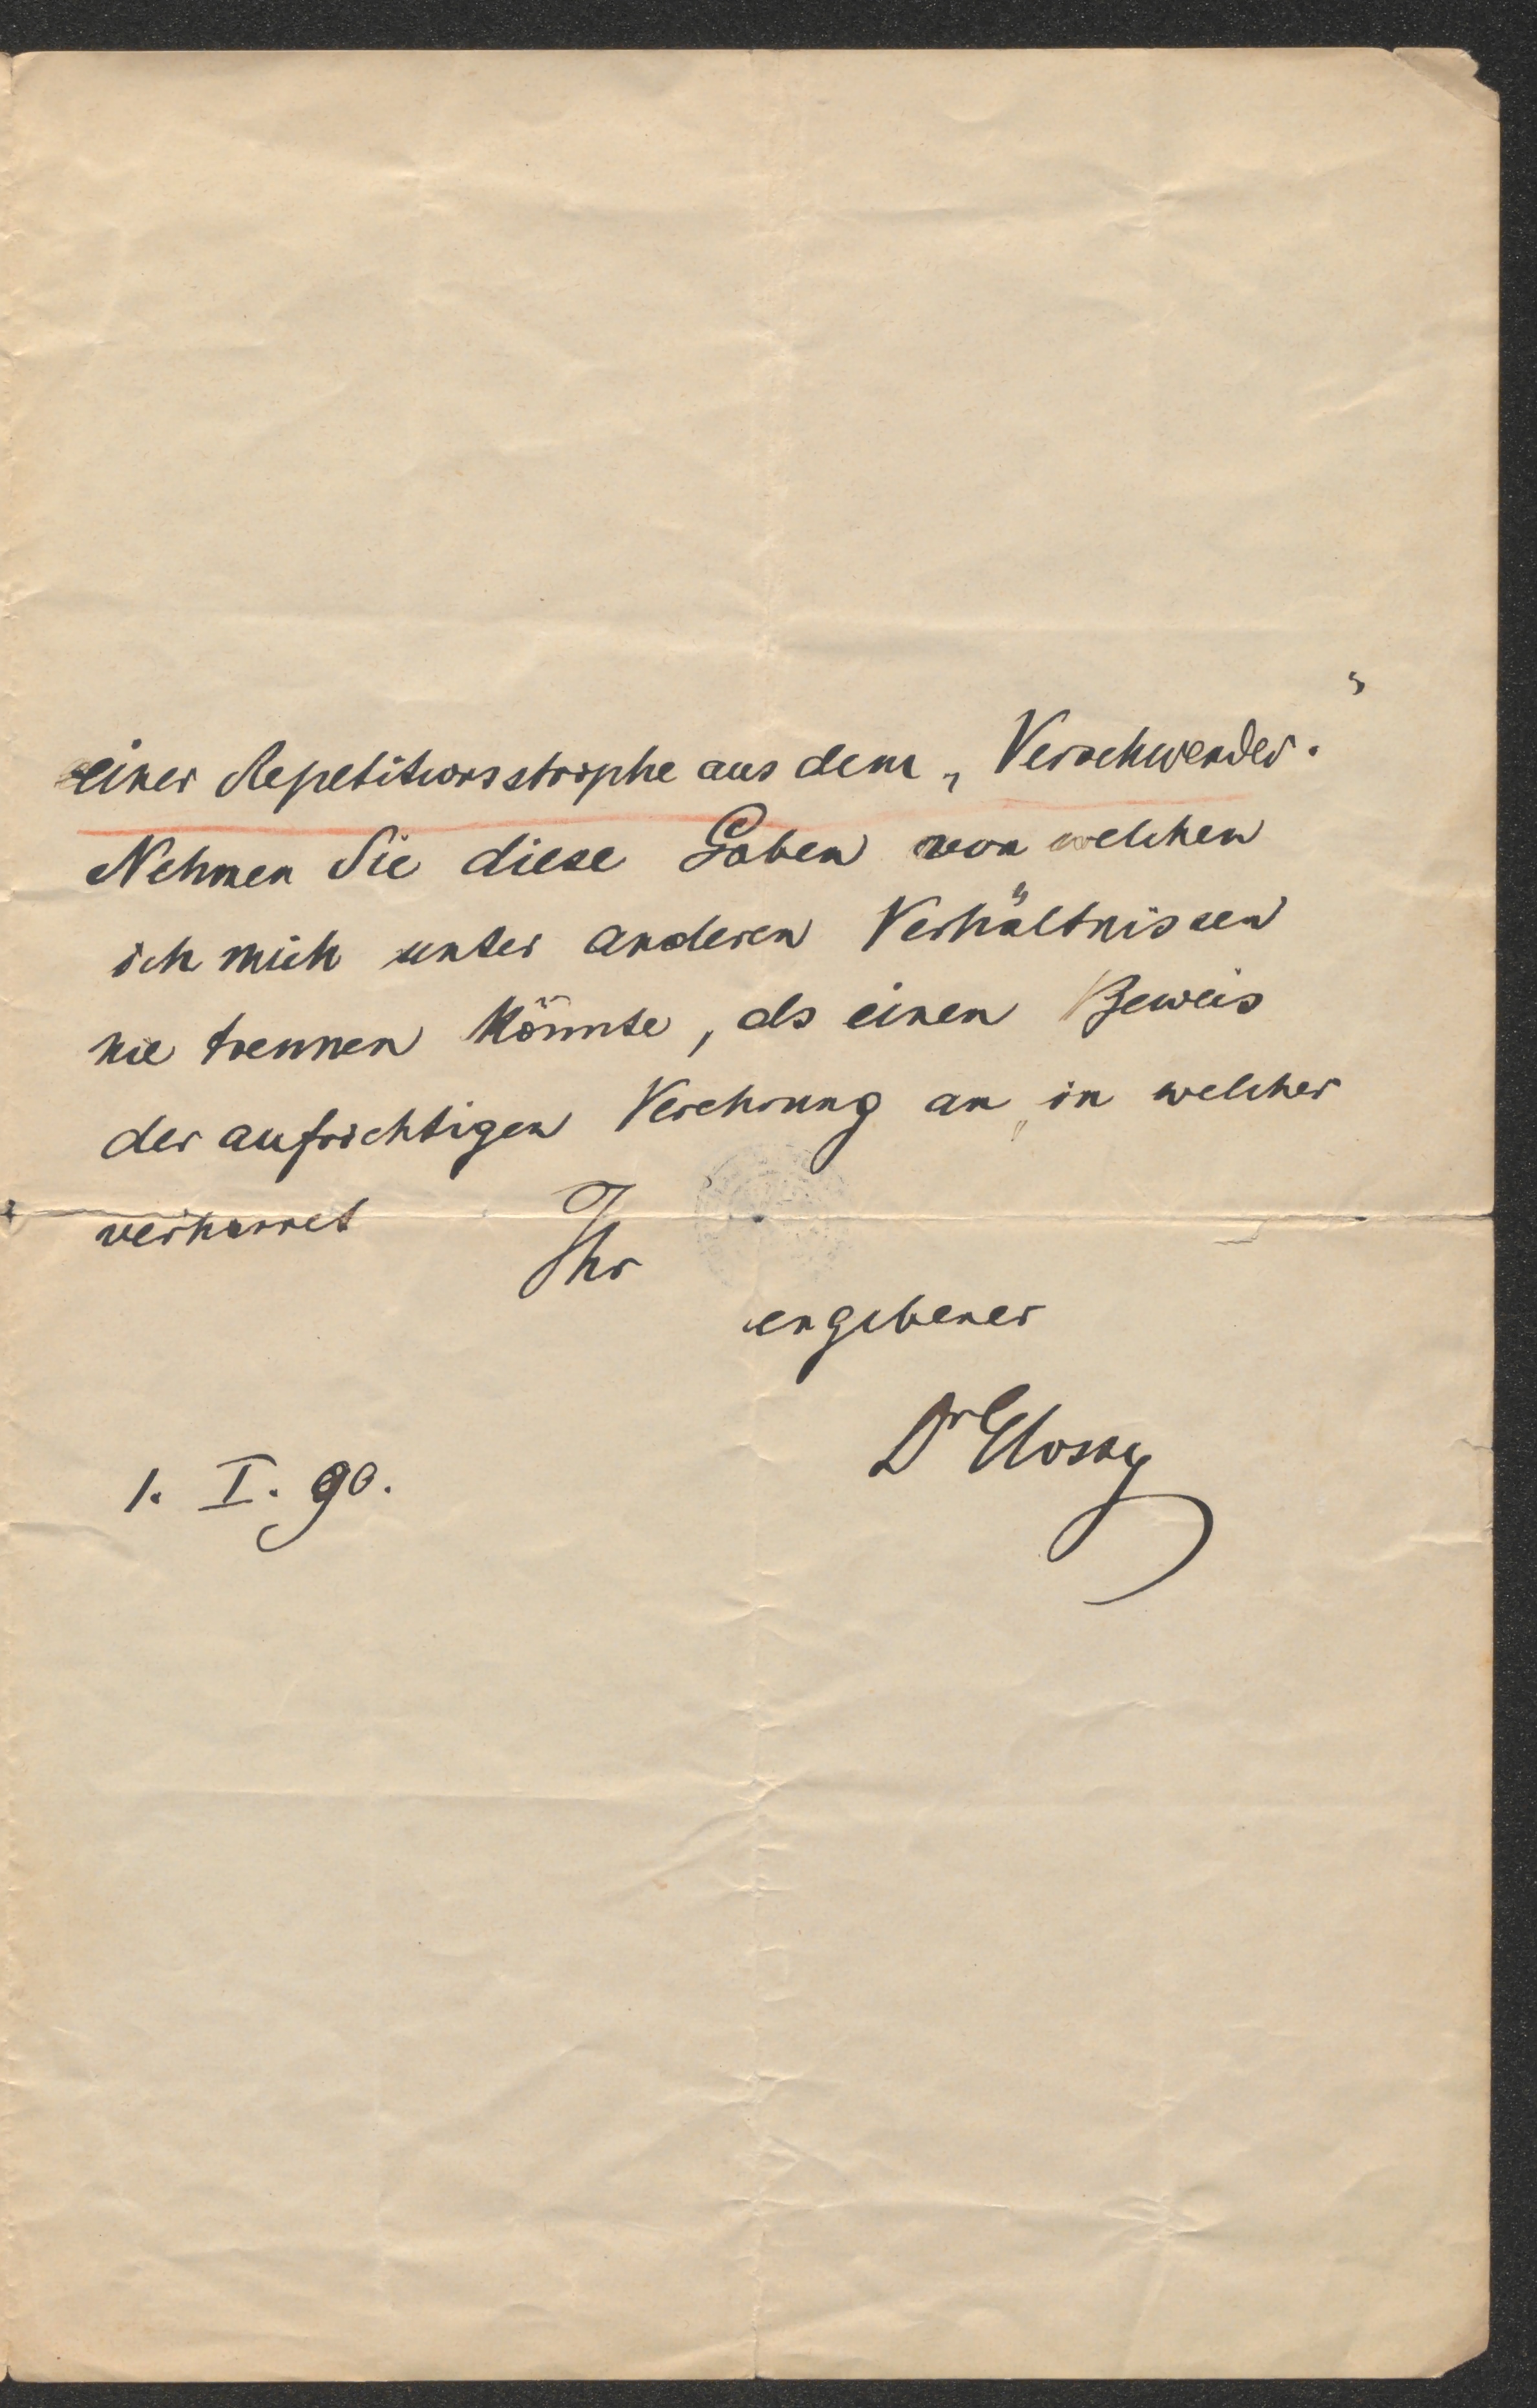 einer Repetitionsstrophe aus dem „Verschwender.“
Nehmen Sie diese Gaben von welchen
ich mich unter anderen Verhältnissen
nie trennen könnte, als einen Beweis
der aufrichtigen Verehrung an, in welcher
verharret Ihr
ergebener
Dr Glossy
1. I. 90.